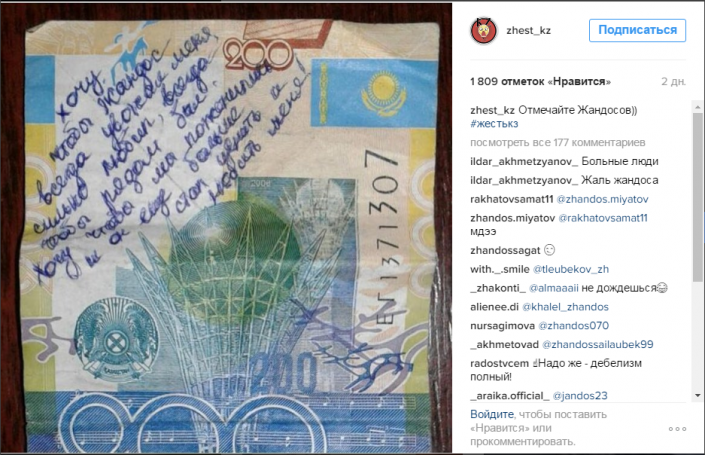 Хочу,
чтобы Жандос
всегда уважал меня,
сильно любил, всегда
чтобы рядом был.
Хочу чтобы мы поженились
и он еще больше
стал ценить и
любить меня!
200
2006
ЕГ1371307
ҚАЗАҚСТАН
200
zhest_kz
Подписаться
1 809 отметок «Нравится»
2 дн.
zhest_kz Отмечайте Жандосов))
#жестькз
посмотреть все 177 комментариев
ildar_akhmetzyanov_ Больные люди
ildar_akhmetzyanov_ Жаль жандоса
rakhatovsamat11 @zhandos.miyatov
zhandos.miyatov @rakhatovsamat11
мдээ
zhandossagat 😑
with._.smile @tleubekov_zh
_zhakonti_ @almaaaii не дождешься😂
alienee.di @khalel_zhandos
nursagimova @zhandos070
_akhmetovad @zhandossailaubek99
radostvcem ☝Надо же - дебелизм
полный!
_araika.official_ @jandos23
Войдите, чтобы поставить
«Нравится» или
прокомментировать.